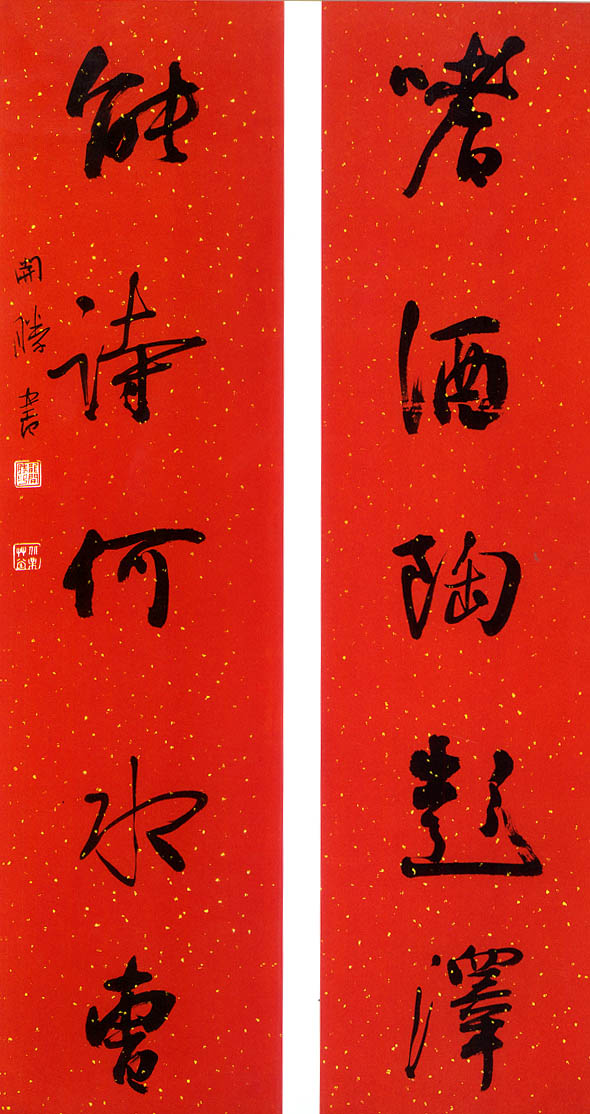 嗜酒陶彭澤
能詩何水曹
開勝書